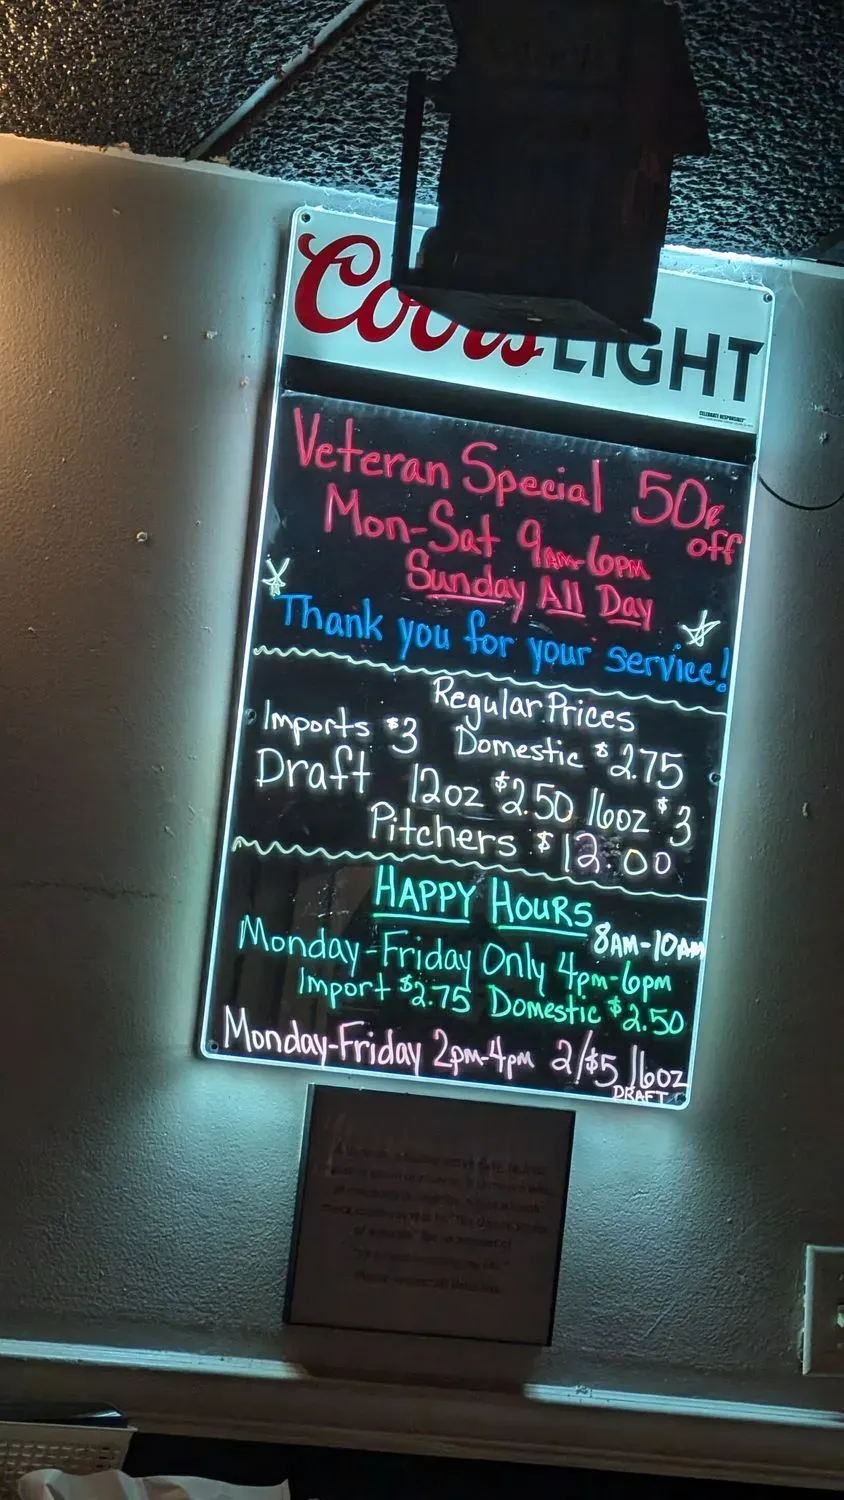 Coors LIGHT
CELEBRATE RESPONSIBLY
Veteran Special 50¢
off
Mon-Sat 9AM-6PM
Sunday All Day
Thank you for your service!
Regular Prices
Imports $3 Domestic $2.75
Draft 12oz $2.50 16oz $3
Pitchers $12.00
HAPPY HOURS
8AM-10AM
Monday-Friday Only 4pm-6pm
Import $2.75 Domestic $2.50
Monday-Friday 2pm-4pm 2/$5 16oz
DRAFT